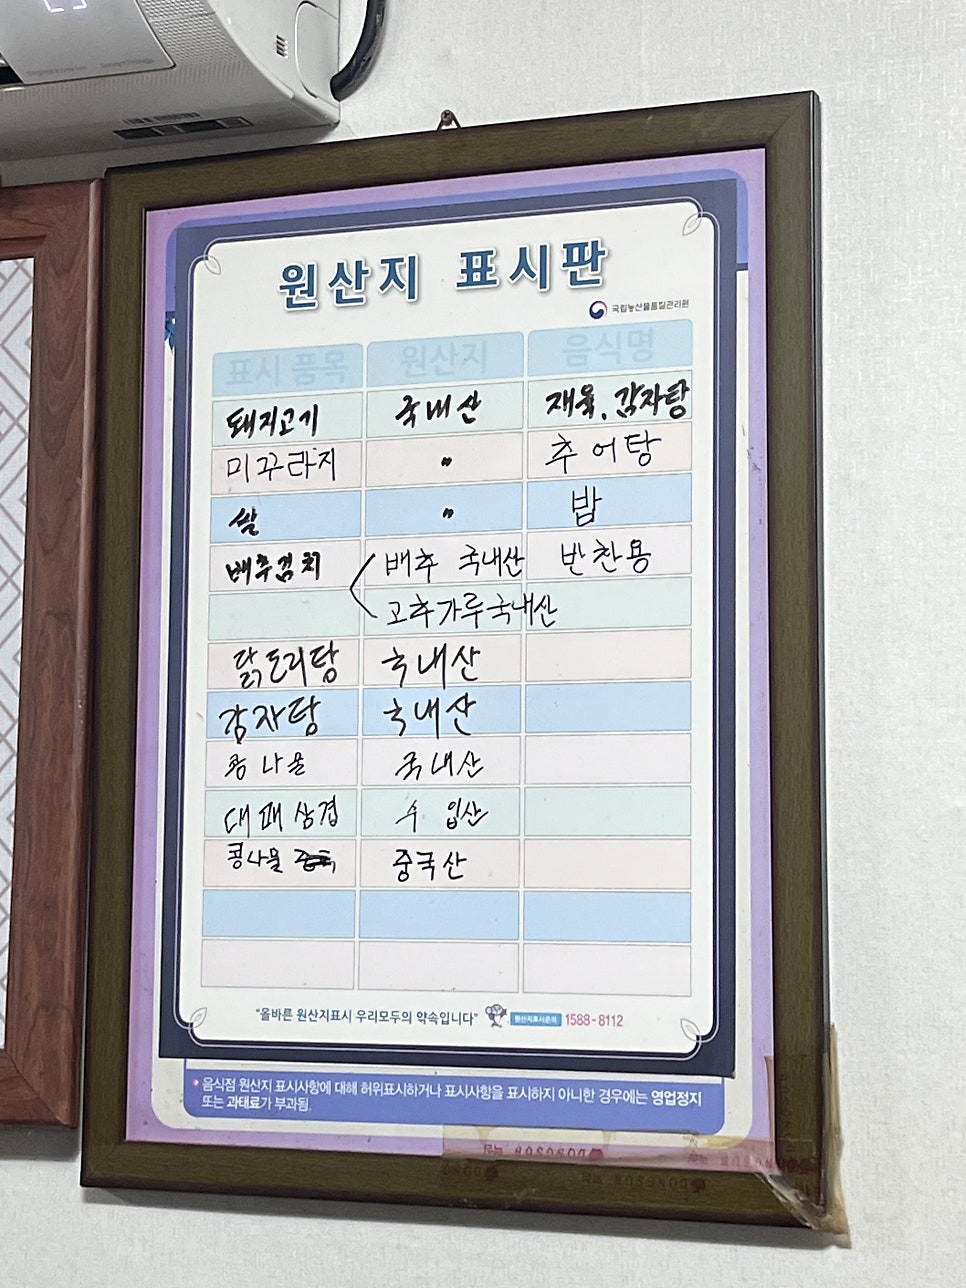 원산지 표시판
국립농산물품질관리원
표시 품목 원산지 음식명
돼지고기 국내산 제육. 감자탕
미꾸라지 〃 추어탕
쌀 〃 밥
배추김치 배추 국내산 반찬용
고추가루국내산
닭도리탕 국내산
감자탕 국내산
콩나물 국내산
대패삼겹 수입산
콩나물 중국산
"올바른 원산지표시 우리모두의 약속입니다" 원산지표시문의 1588-8112
음식점 원산지 표시사항에 대해 허위표시하거나 표시사항을 표시하지 아니한 경우에는 영업정지
또는 과태료가 부과됨